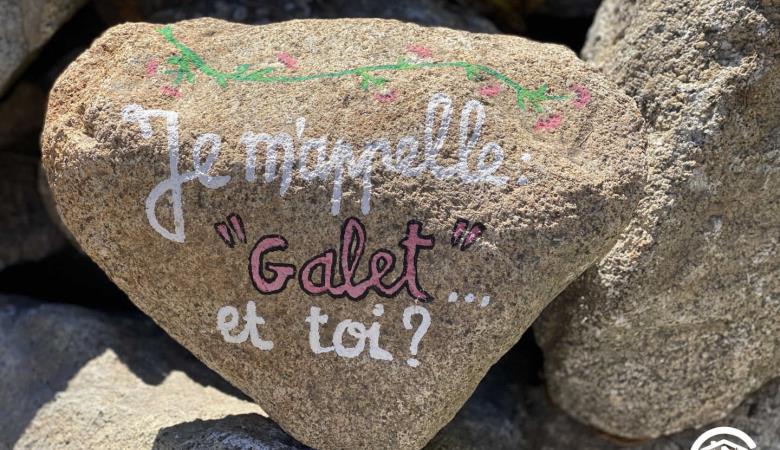 Je m'appelle :
"Galet"...
et toi ?